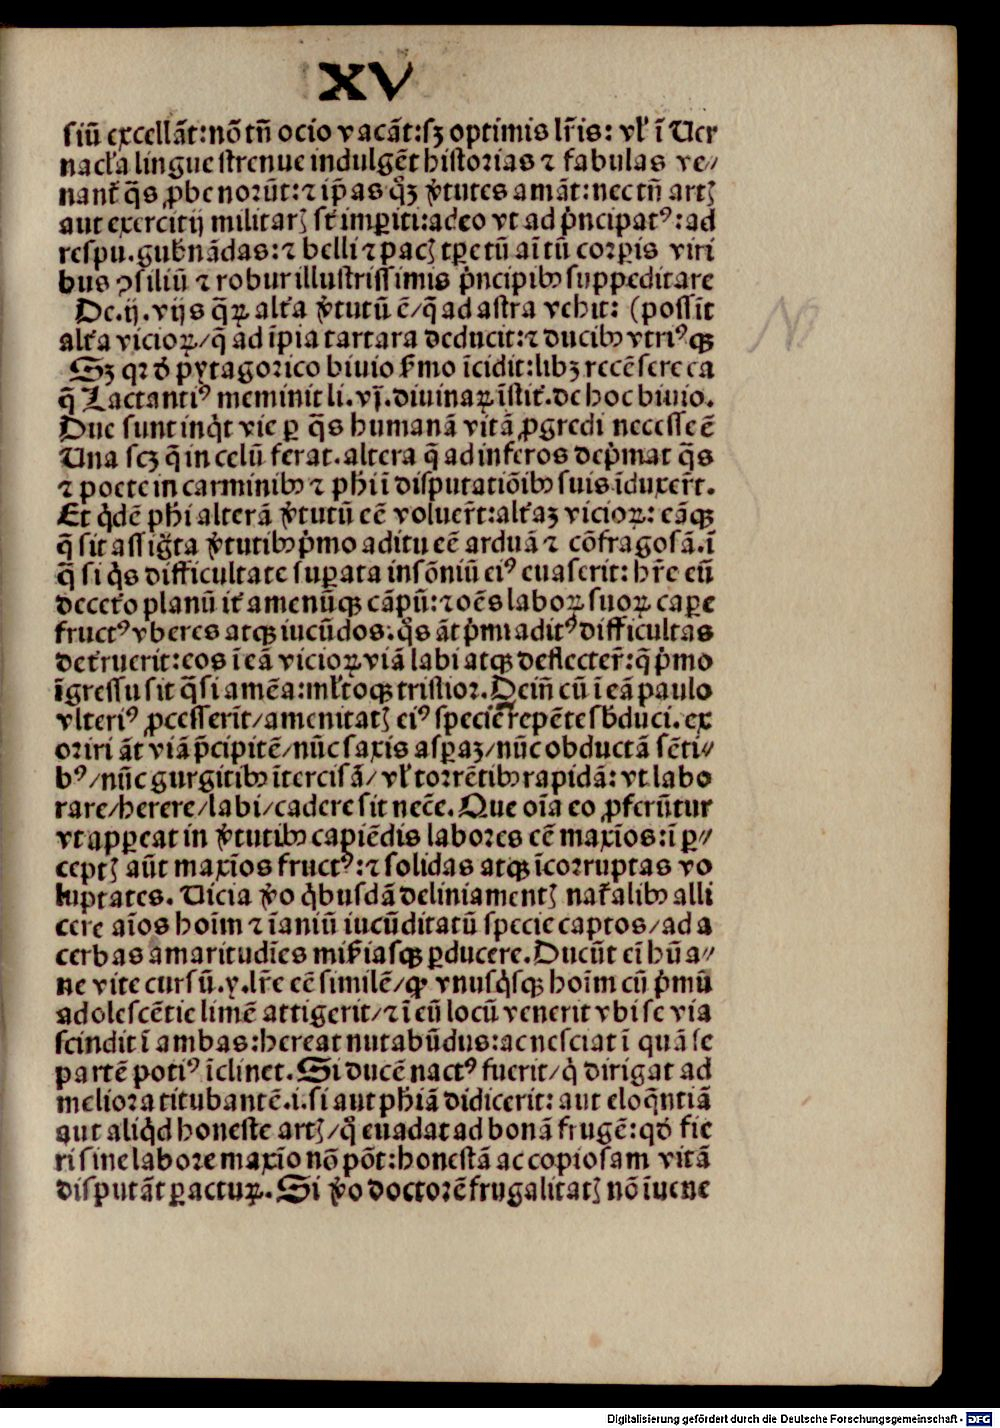 XV
siū excellāt: nō tn̄ ocio vacāt: sꝫ optimis lr̄is: vl̓ ī Ver
nacl̓a lingue strenue indulgēt historias ⁊ fabulas ve⸗
nant̓ q̄s ꝓbe norūt: ⁊ ip̄as qͦꝫ v̓tutes amāt: nec tn̄ artꝭ
aut exercitij militarꝭ st̓ imꝑiti: adeo vt ad pͥncipatꝰ: ad
respu. gub̓nādas: ⁊ belli ⁊ pacꝭ tꝑe tū aī tū corꝑis viri
bus ꝯsiliū ⁊ robur illustrissimis pͥncipibꝰ suppeditare
De .ij. vijs q̄ꝝ alt̓a v̓tutū ē / q̄ ad astra vehit: (possīt
alt̓a vicioꝝ / q̄ ad īpia tartara deducit: ⁊ ducibꝰ vtriꝰqꝫ
Sꝫ qꝛ ð pytagorico biuio s̓mo īcidit: libꝫ recēsere ea
q̄ Lactantiꝰ meminit li. vj. diuinaꝝ īstit̓. de hoc biuio.
Due sunt inqͥt vie ꝑ q̄s humanā vitā ꝓgredi necesse ē
Una scꝫ q̄ in celū ferat. altera q̄ ad inferos depͥmat q̄s
⁊ poete in carminibꝰ ⁊ phi̓ ī disputatiōibꝰ suis īduxer̄t.
Et qͥdē phi̓ alterā v̓tutū eē voluer̄t: alt̓aꝫ vicioꝝ: eāqꝫ
q̄ sit assig̓ta v̓tutibꝰ pͥmo aditu eē arduā ⁊ cōfragosā. ī
q̄ si qͥs difficultate suꝑata in sōniū eiꝰ euaserit: hr̄e eū
decet̓o planū it̓ amenūqꝫ cāpū: ⁊ oēs laboꝝ suoꝝ caꝑe
fructꝰ vberes atqꝫ iucūdos. qͦs āt pͥmi aditꝰ difficultas
det̓ruerit: eos ī eā vicioꝝ viā labi atqꝫ deflecter̄: q̄ pͥmo
īgressu sit q̄si amēa: ml̓toqꝫ tristior. Dein̄ cū ī eā paulo
vlteriꝰ ꝓcesserīt / amenitatꝭ eiꝰ speciē repēte sb̓duci. ex
oriri āt viā p̄cipitē / nūc saxis asꝑaꝫ / nūc obductā sēti⸗
bꝰ / nūc gurgitibꝰ ītercisā / vl̓ torrētibꝰ rapidā: vt labo
rare / herere / labi / cadere sit necē. Que oīa eo ꝓferūtur
vt apꝑeat in v̓tutibꝰ capiēdis labores eē maxīos: ī ꝑ⸗
ceptꝭ aūt maxīos fructꝰ: ⁊ solidas atqꝫ īcorruptas vo
luptates. Vicia v̓o qͥbusdā deliniamentꝭ nat̓alibꝰ alli
cere aīos hoīm ⁊ īaniū iucūditatū specie captos / ad a
cerbas amaritudīes mis̓iasqꝫ ꝑducere. Ducūt eī hūa⸗
ne vite cursū .y. lr̄e eē similē / qꝙ vnusqͥsqꝫ hoīm cū pͥmū
adolescētie limē attigerit / ⁊ ī eū locū venerit vbi se via
scindit ī ambas: hereat nutabūdus: ac nesciat ī quā se
partē potiꝰ īclinet. Si ducē nactꝰ fuerit / qͥ dirigat ad
meliora titubantē .i. si aut phi̓ā didicerit: aut eloq̄ntiā
aut aliqͥd honeste artꝭ / qͦ euadat ad bonā frugē: qð fie
ri sine labore maxīo nō pōt: honestā ac copiosam vitā
disputāt ꝑactuꝝ. Si v̓o doctorē frugalitatꝭ nō īuene
Digitalisierung gefördert durch die Deutsche Forschungsgemeinschaft - DFG